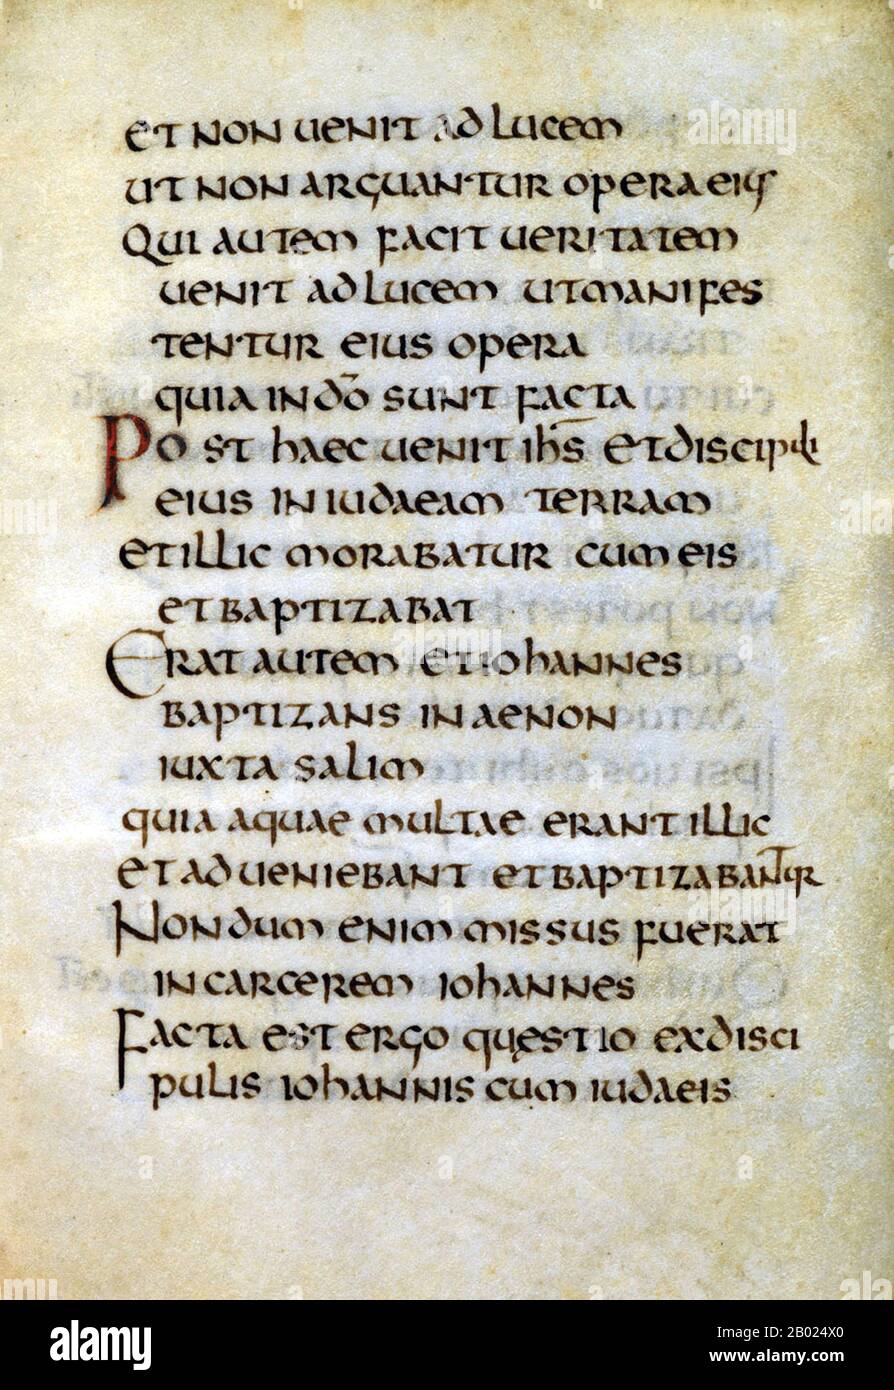 et non uenit ad lucem
ut non arguantur opera eius
Qui autem facit ueritatem
uenit ad lucem ut manifes
tentur eius opera
quia in dō sunt facta
Post haec uenit ihs̄ et discipuli
eius in iudaeam terram
et illic morabatur cum eis
et baptizabat
Erat autem et iohannes
baptizans in aenon
iuxta salim
quia aquae multae erant illic
et adueniebant et baptizabantur
Nondum enim missus fuerat
in carcerem iohannes
Facta est ergo quęstio ex disci
pulis iohannis cum iudaeis
alamy
Image ID: 2B024X0
www.alamy.com